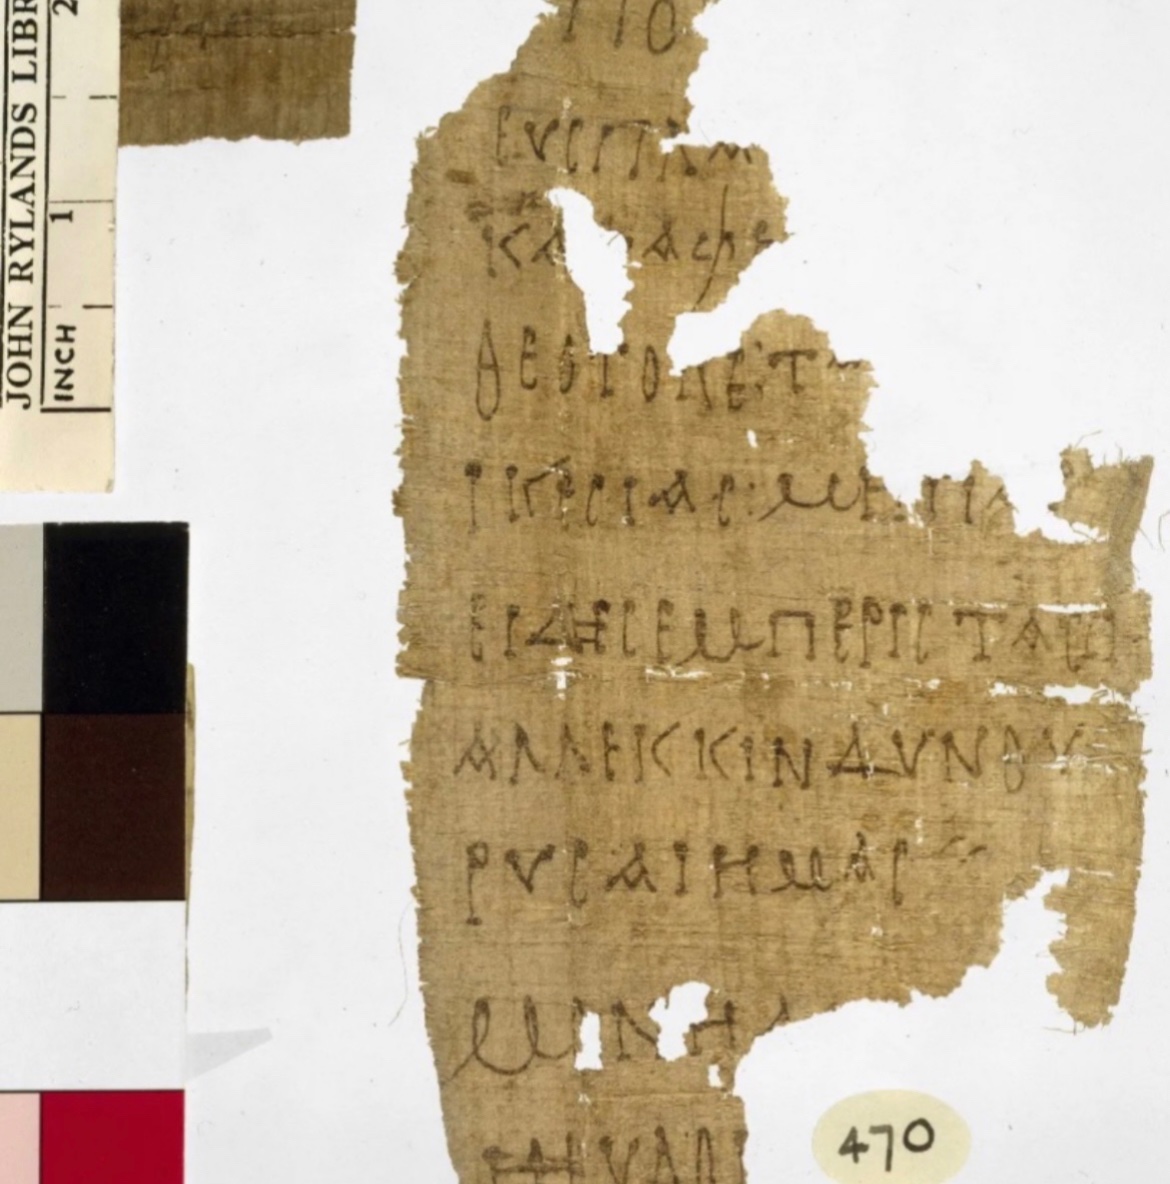 JOHN RYLANDS LIBR
INCH 1 2
ΠΟ
ΕΥCΠΛ
ΚΑ ΑΦΕ
ΘΕΟΤΟΚΕ·Τ
ΙΚΕCΙΑC: ΜΗΠΑ
ΕΙΔΗCΕΜΠΕΡΙCΤΑCΕΙ
ΑΛΛΕΚΚΙΝΔΥΝΟΥ
ΡΥCΑΙΗΜΑC
ΜΟΝΗ
470